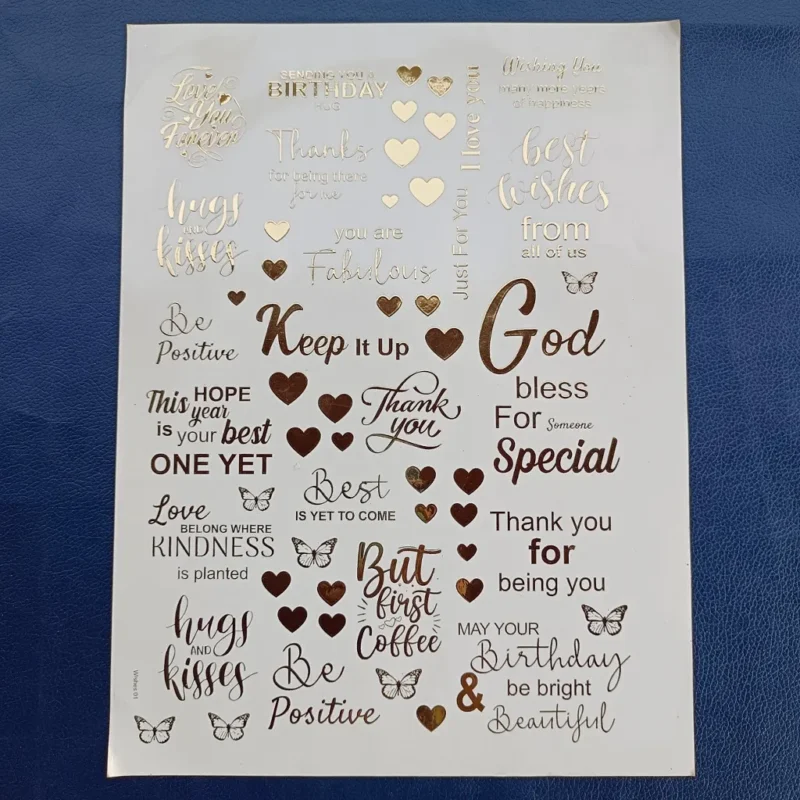 Love
You
Forever
SENDING YOU a
BIRTHDAY
HUG
I love you
Wishing You
many more years
of happiness
Thanks
for being there
for me
best
wishes
from
all of us
hugs
AND
kisses
you are
Fabulous
Just For You
Be
Positive
Keep It Up
God
bless
For Someone
Special
This HOPE
year
is your best
ONE YET
Thank
you
Best
IS YET TO COME
Love
BELONG WHERE
KINDNESS
is planted
Thank you
for
being you
But
first
Coffee
hugs
AND
kisses
Be
Positive
MAY YOUR
Birthday
be bright
& Beautiful
Wishes 01